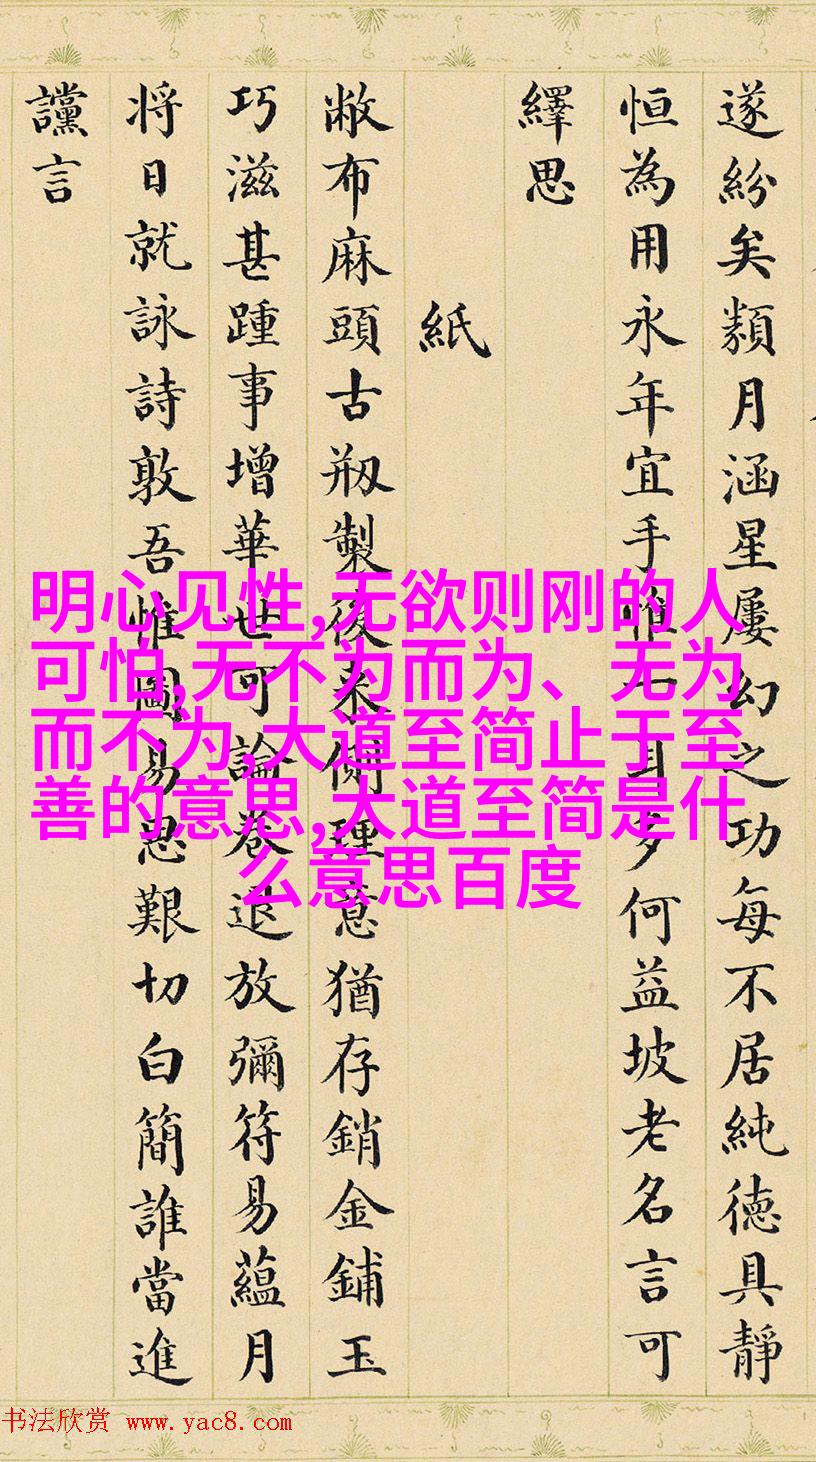 遂紛矣類月涵星屢幻之功每不居純德具靜
恒為用永年宜手惟一多何益坡老名言可
繹思
紙
敝布麻頭古剏製後来側理意猶存銷金鋪玉
巧滋甚踵事增華世可論卷退放彌符易蘊月
将日就詠詩敦吾惟圖易思艱切白簡誰當進
讜言
明心见性,无欲则刚的人
可怕,无不为而为、无为
而不为,大道至简止于至
善的意思,大道至简是什
么意思百度
书法欣赏 www.yac8.com